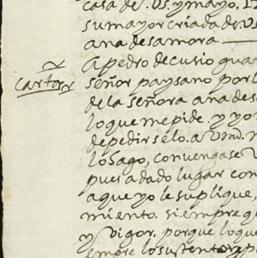 casa de. Vs. y mayo, 1
su mayor criada de Vs
ana de samora
a pedro de cusio qua
cartas
señor paysano por l
de la señora ana des
lo que me pide. y yo
de pedirselo. a Vmd.
lo hago, convengase
pues a dado lugar con
a que yo le suplique,
miento. siempre q
y vigor, porque loque
empre lo sustento, y p